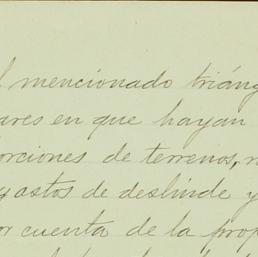 l mencionado triáng
ares en que hayan
orciones de terrenos,
gastos de deslinde y
or cuenta de la prop